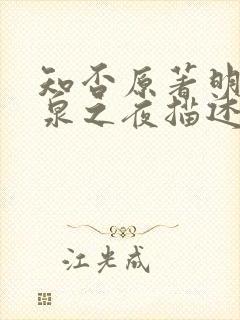 知否原著明
泉之夜描述
江光成